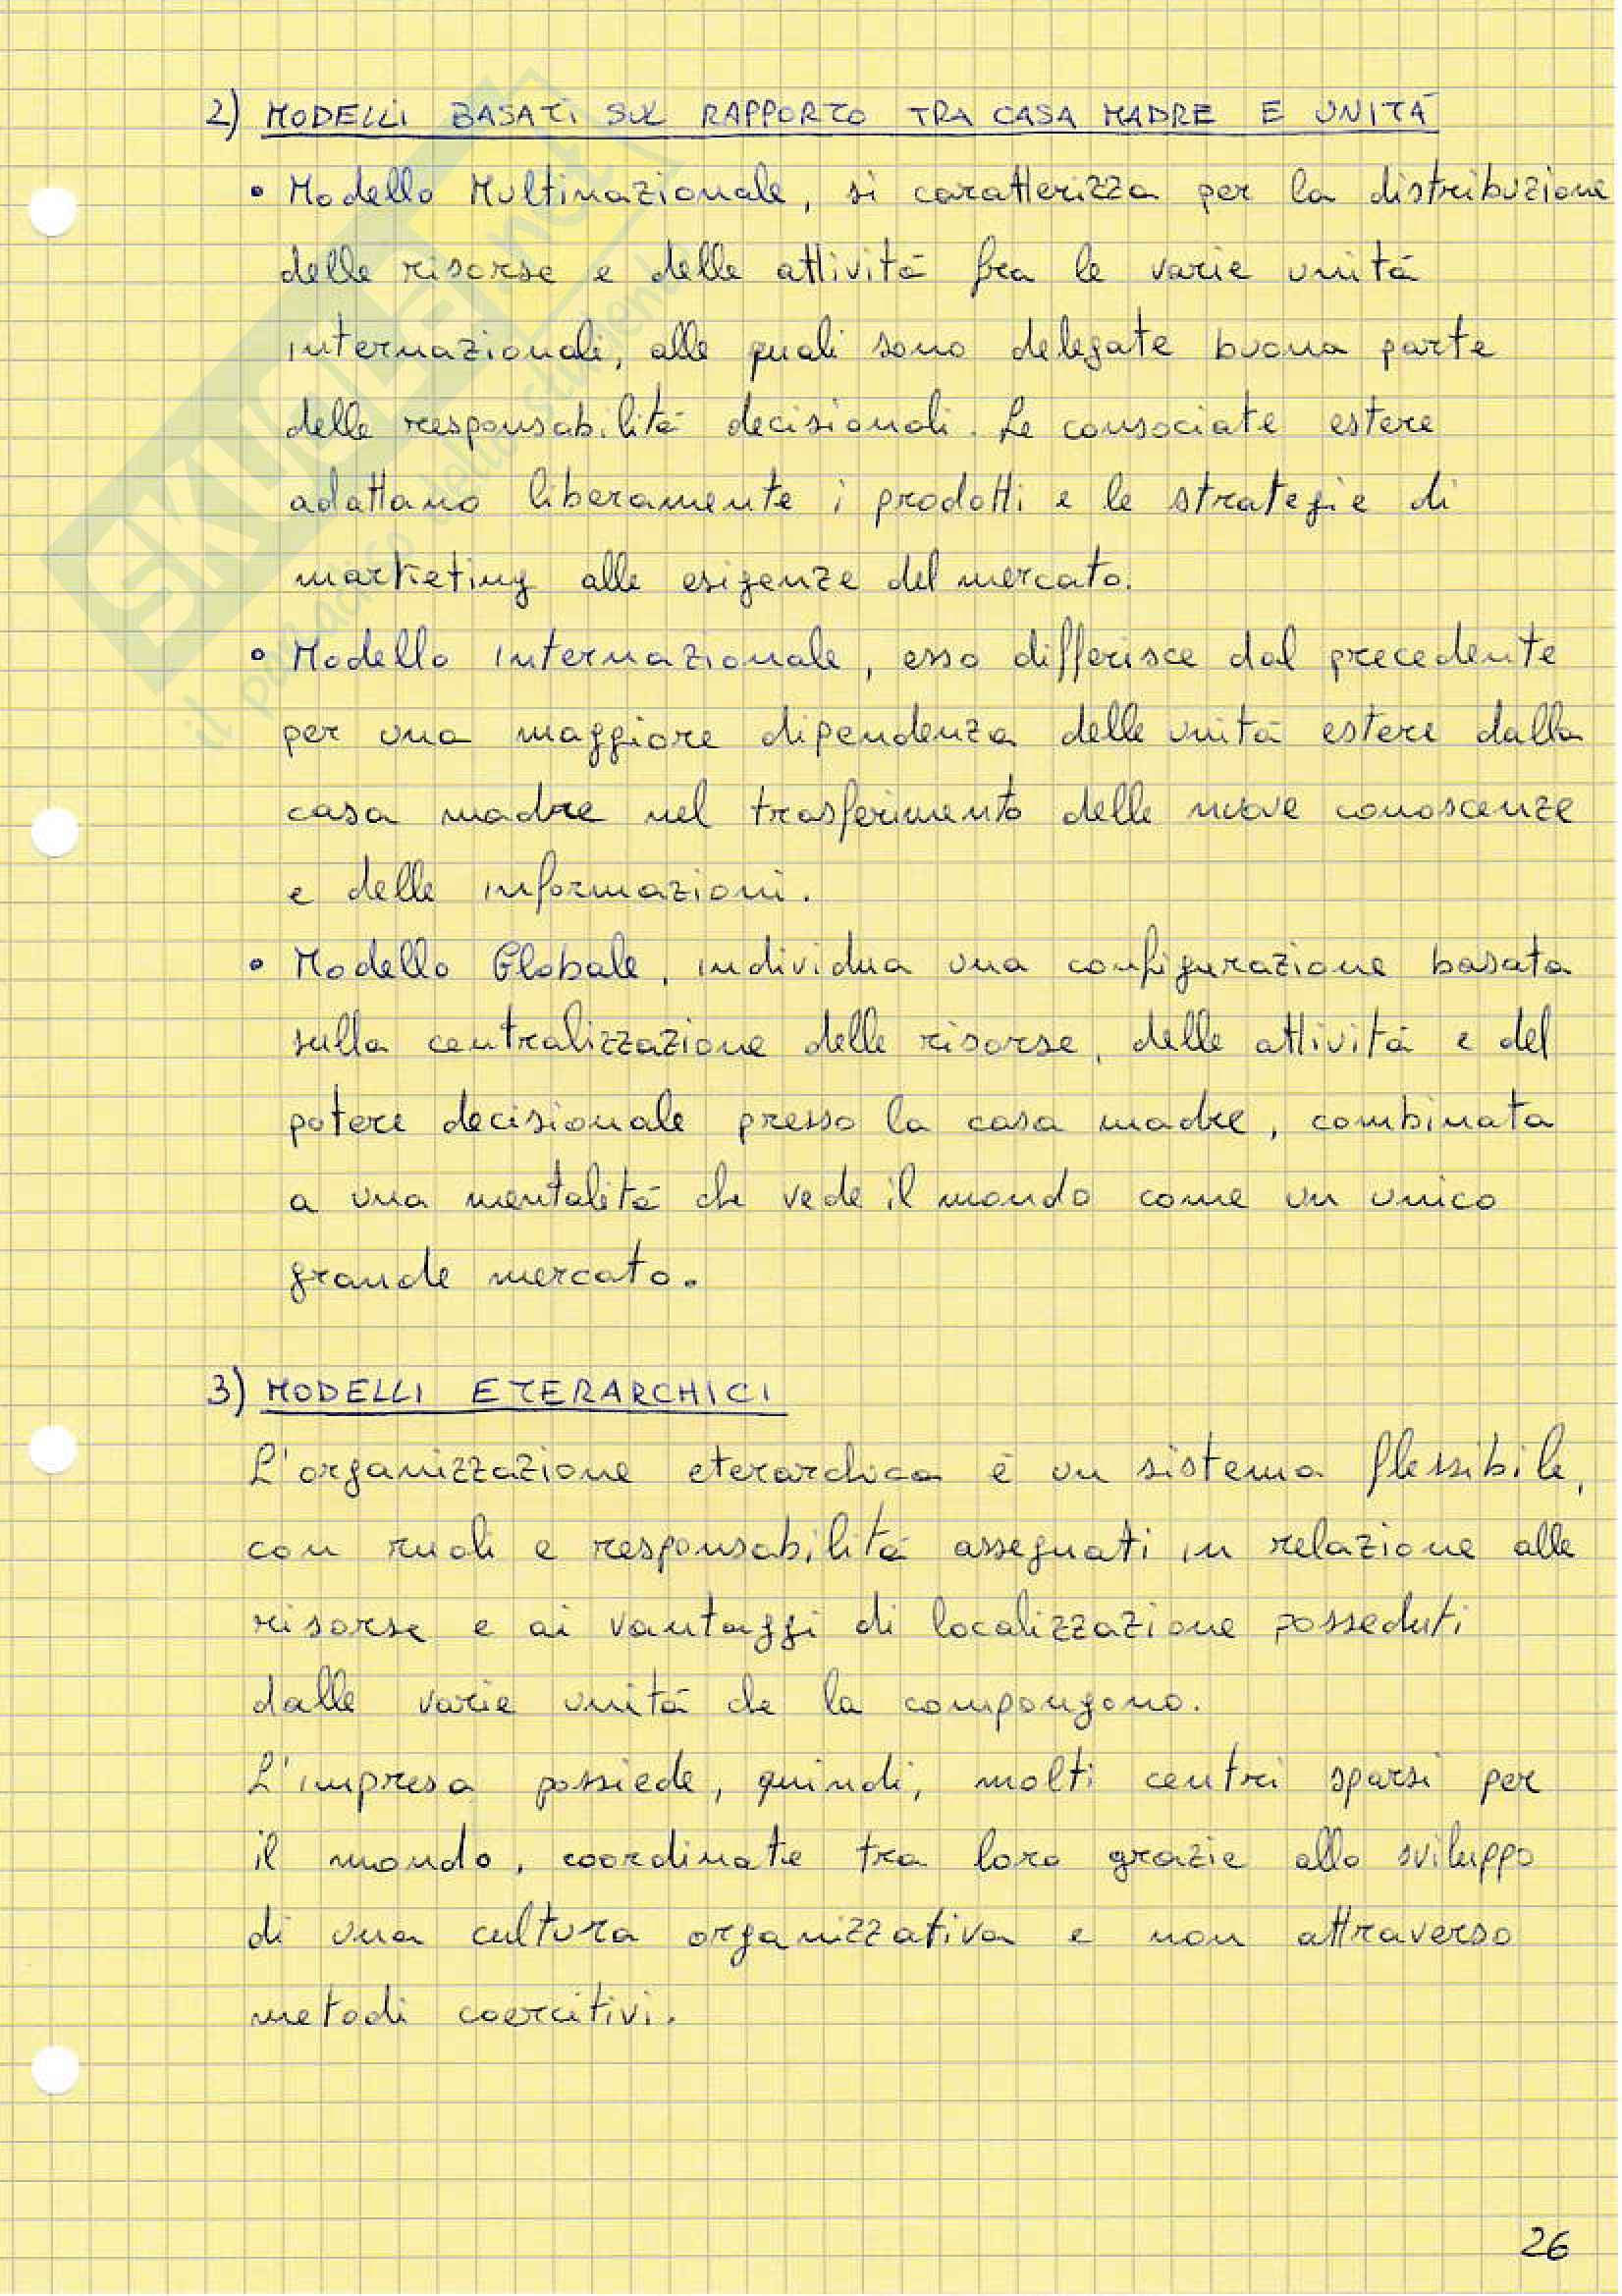 2) MODELLI BASATI SUL RAPPORTO TRA CASA MADRE E UNITÀ
• Modello Multinazionale, si caratterizza per la distribuzione
delle risorse e delle attività fra le varie unità
internazionali, alle quali sono delegate buona parte
delle responsabilità decisionali. Le consociate estere
adattano liberamente i prodotti e le strategie di
marketing alle esigenze del mercato.
• Modello internazionale, esso differisce dal precedente
per una maggiore dipendenza delle unità estere dalla
casa madre nel trasferimento delle nuove conoscenze
e delle informazioni.
• Modello Globale, individua una configurazione basata
sulla centralizzazione delle risorse, delle attività e del
potere decisionale presso la casa madre, combinata
a una mentalità che vede il mondo come un unico
grande mercato.
3) MODELLI ETERARCHICI
L'organizzazione eterarchica è un sistema flessibile,
con ruoli e responsabilità assegnati in relazione alle
risorse e ai vantaggi di localizzazione posseduti
dalle varie unità che la compongono.
L'impresa possiede, quindi, molti centri sparsi per
il mondo, coordinate tra loro grazie allo sviluppo
di una cultura organizzativa e non attraverso
metodi coercitivi.
26
SKUOLA.net
il paradiso dello studente